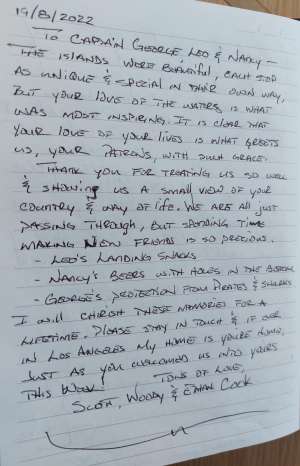 19/8/2022
To Captain George, Leo & Nancy –
The islands were beautiful, each stop
as unique & special in their own way,
but your love of the waters is what
was most inspiring. It is clear that
your love of your lives is what greets
us, your patrons, with such grace.
Thank you for treating us so well
& showing us a small view of your
country & way of life. We are all just
passing through, but spending time
making new friends is so precious.
- Leo's Landing Snacks
- Nancy's Beers with holes in the bottom
- George's protection from Pirates & Sharks
I will cherish these memories for a
lifetime. Please stay in touch & if ever
in Los Angeles my home is you're home,
just as you welcomed us into yours
this week.
Tons of love,
Scott, Woody & Ethan Cook